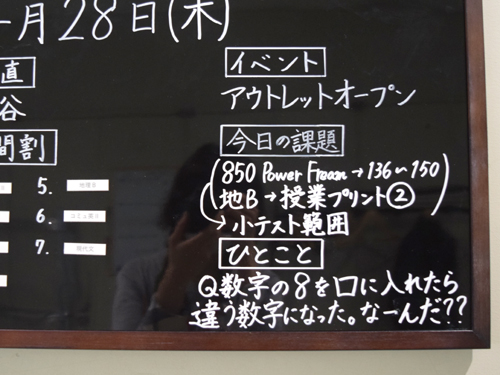 月28日(木)
直
谷
間割
5. 地理B
6.
7. 現代文
イベント
アウトレットオープン
今日の課題
850 Power Frean→136〜150
地B→授業プリント②
→小テスト範囲
ひとこと
Q数字の8を口に入れたら
違う数字になった。なーんだ??